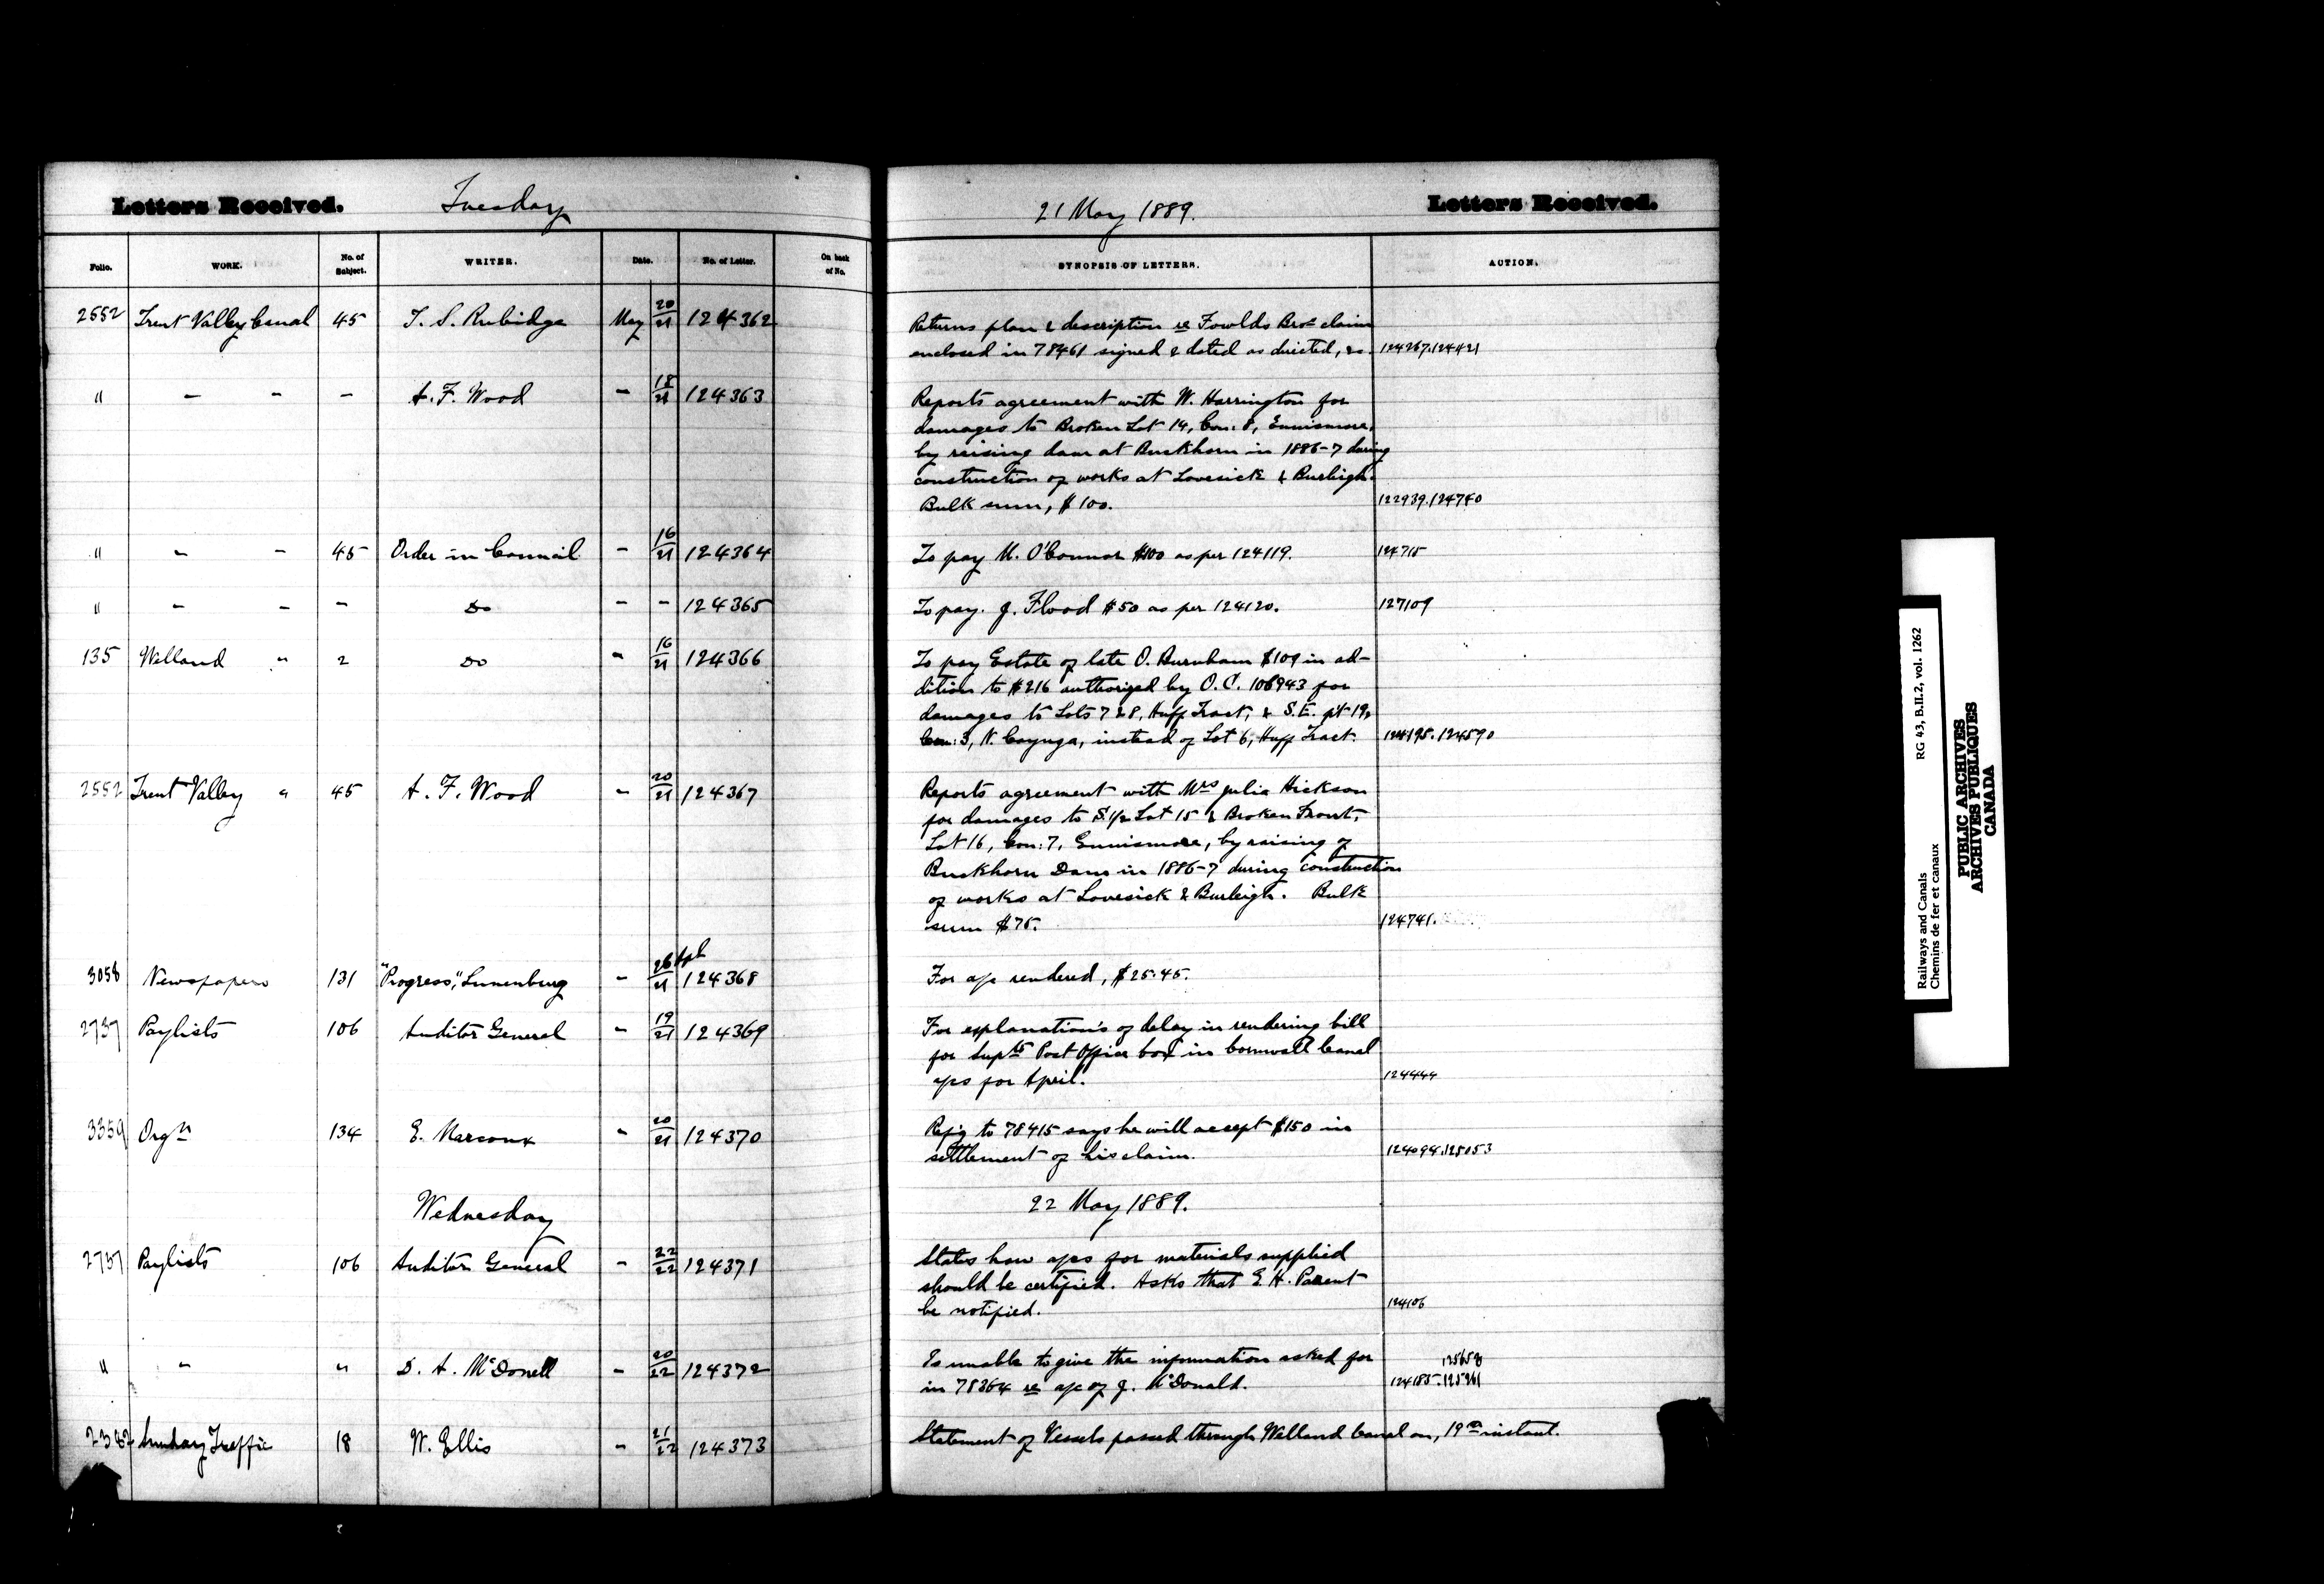 Letters Received. Tuesday 21 May 1889. Letters Received.
Folio. WORK. No. of Subject. WRITER. Date. No. of Letter. On back of No. SYNOPSIS OF LETTERS. ACTION.
2552 Trent Valley Canal 45 T. S. Rubidge May 20/21 124362 Returns plan & description re Fowlds Bros claim
enclosed in 78461 signed & dated as directed, &c. 124267.124421
" - - - A. F. Wood - 18/21 124363 Reports agreement with W. Harrington for
damages to Broken Lot 14, Con: 8, Ennismore,
by raising dam at Buckhorn in 1886-7 during
construction of works at Lovesick & Burleigh.
Bulk sum, $100. 122939.124740
" - - 45 Order in Council - 16/21 124364 To pay M. O'Connor $100 as per 124119. 124715
" - - - Do - - 124365 To pay J. Flood $50 as per 124120. 127109
135 Welland " 2 Do - 16/21 124366 To pay Estate of late O. Burnham $109 in ad-
dition to $216 authorized by O.C. 106943 for
damages to Lots 7 & 8, Huff Tract, & S.E. pt 19,
Con: 3, N. Cayuga, instead of Lot 6, Huff Tract. 124195.124590
2552 Trent Valley " 45 A. F. Wood - 20/21 124367 Reports agreement with Mrs Julia Hickson
for damages to S.1/2 Lot 15 & Broken Front,
Lot 16, Con: 7, Ennismore, by raising of
Buckhorn Dam in 1886-7 during construction
of works at Lovesick & Burleigh. Bulk
sum $75. 124741.
3058 Newspapers 131 "Progress", Lunenburg - 26 Apl/21 124368 For a/c rendered, $25.45.
2737 Paylists 106 Auditor General - 19/21 124369 For explanations of delay in rendering bill
for Supts Post Office box in Cornwall Canal
a/cs for April. 124444
3359 Orgn 134 E. Marcoux - 20/21 124370 Refg to 78415 says he will accept $150 in
settlement of his claim. 124094.125053
Wednesday 22 May 1889.
2737 Paylists 106 Auditor General - 22/22 124371 States how a/cs for materials supplied
should be certified. Asks that E. H. Parent
be notified. 124106
" " " D. A. McDonell - 20/22 124372 Is unable to give the information asked for 125658
in 78364 re a/c of J. McDonald. 124185.125961
2382 Sunday Traffic 18 W. Ellis - 21/22 124373 Statement of Vessels passed through Welland Canal on, 19th instant.
Railways and Canals RG 43, B.II.2, vol. 1262
Chemins de fer et canaux
PUBLIC ARCHIVES
ARCHIVES PUBLIQUES
CANADA